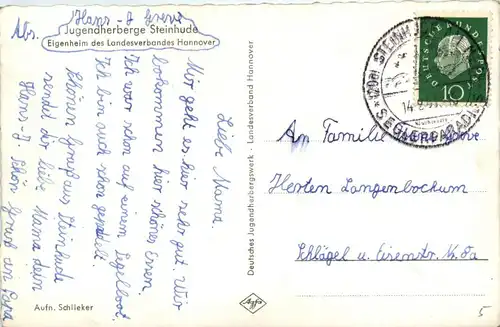 Abs. Hans-J Greve
Jugendherberge Steinhude
Eigenheim des Landesverbandes Hannover
Liebe Mama.
Mir geht es hier sehr gut. Wir
bekommen hier schönes Essen
Ich war schon auf einem Segelboot.
Ich bin auch schon gepaddelt.
Schönen Gruß aus Steinhude
sendet dir liebe Mama dein
Hans-J Schön Gruß an Papa
Aufn. Schlieker
Deutsches Jugendherbergswerk - Landesverband Hannover
Agfa
DEUTSCHE BUNDESPOST
10
STEINH
SEGLERPARADIES
14.
An Familie Greve
Herten Langenbochum
Schlägel u. Eisenstr.
5